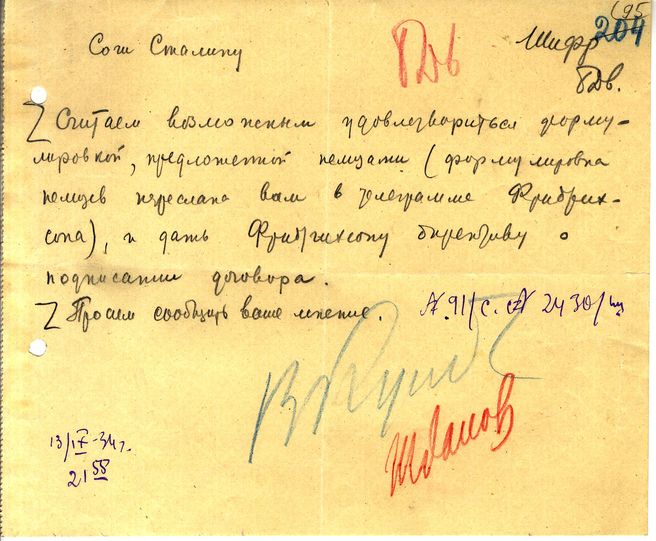 (95
204
Сочи Сталину
Шифр
Считаем возможным удовлетвориться форму-
лировкой, предложенной немцами (формулировка
немцев переслана вам в телеграмме Фридрих-
сона), и дать Фридрихсону директиву о
подписании договора.
Просим сообщить ваше мнение.
Жданов
13/IX-34 г.
21 58